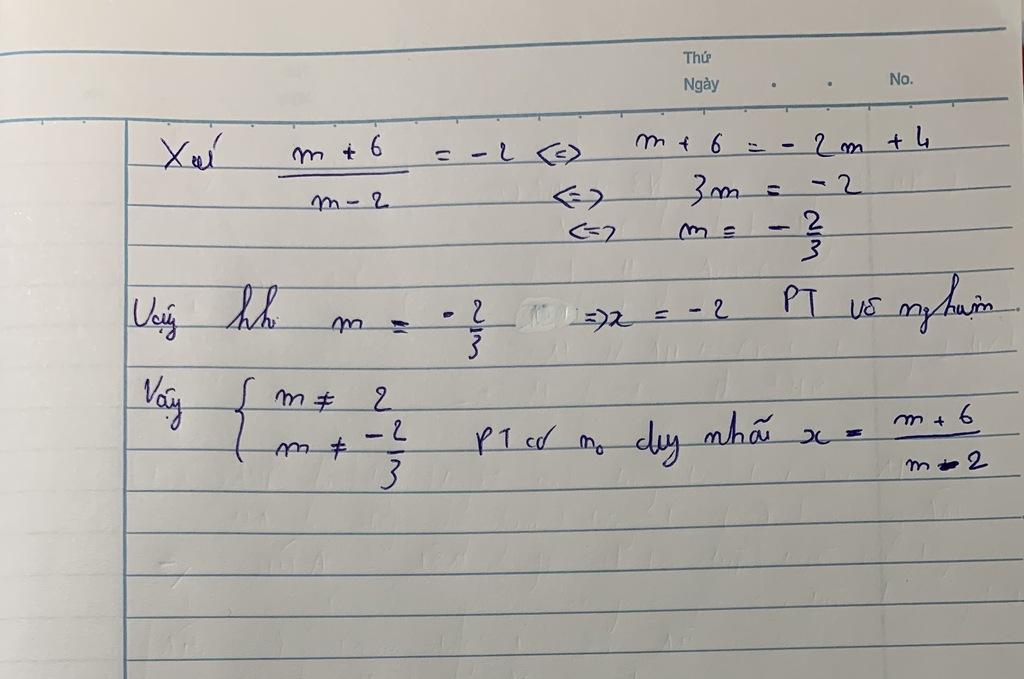 Thứ
Ngày . . No.
Xét (m + 6)/(m - 2) = -2 <=> m + 6 = -2m + 4
<=> 3m = -2
<=> m = -2/3
Vậy khi m = -2/3 => x = -2 PT vô nghiệm.
Vậy { m ≠ 2
m ≠ -2/3 PT có n₀ duy nhất x = (m + 6)/(m - 2)